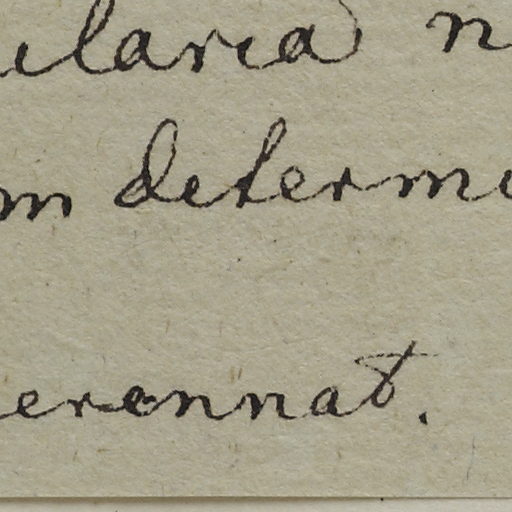 ilaria n
m determi
erennat.